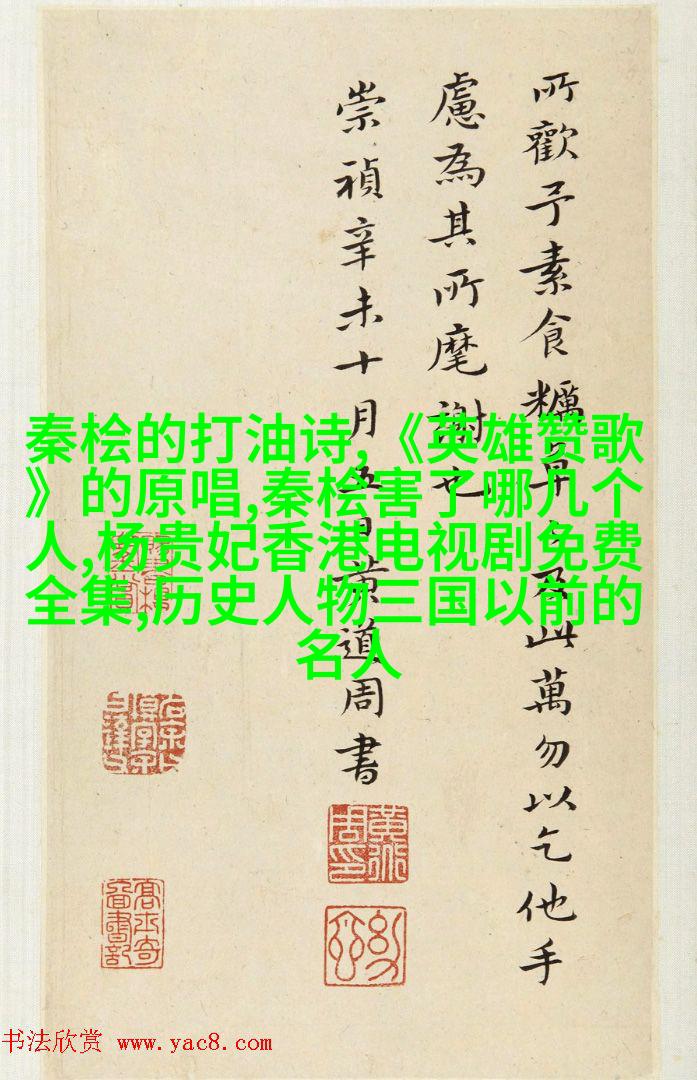 所歡予素食糲草
此萬勿以乞他手
慮為其所麾謝也
崇禎辛未十月五日黄道周書
秦桧的打油诗,《英雄赞歌
》的原唱,秦桧害了哪几个
人,杨贵妃香港电视剧免费
全集,历史人物三国以前的
名人
黃道周印
书法欣赏 www.yac8.com